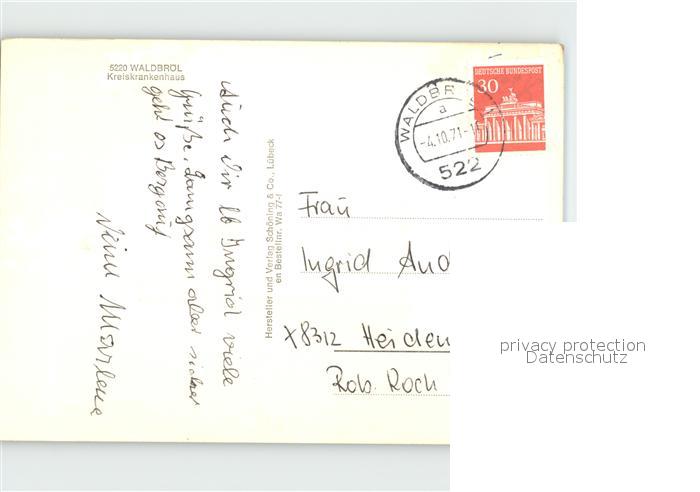 5220 WALDBRÖL
Kreiskrankenhaus
Auch Dir lb Ingrid viele
Grüße, Langsam aber sicher
geht es Bergauf
Marlene
Hersteller und Verlag Schöning & Co., Lübeck
en Bestellnr. Wa 77-I
DEUTSCHE BUNDESPOST
30
WALDBR
a
-4.10.71-1
522
Frau
Ingrid And
X8312 Heiden
Rob. Koch
privacy protection
Datenschutz